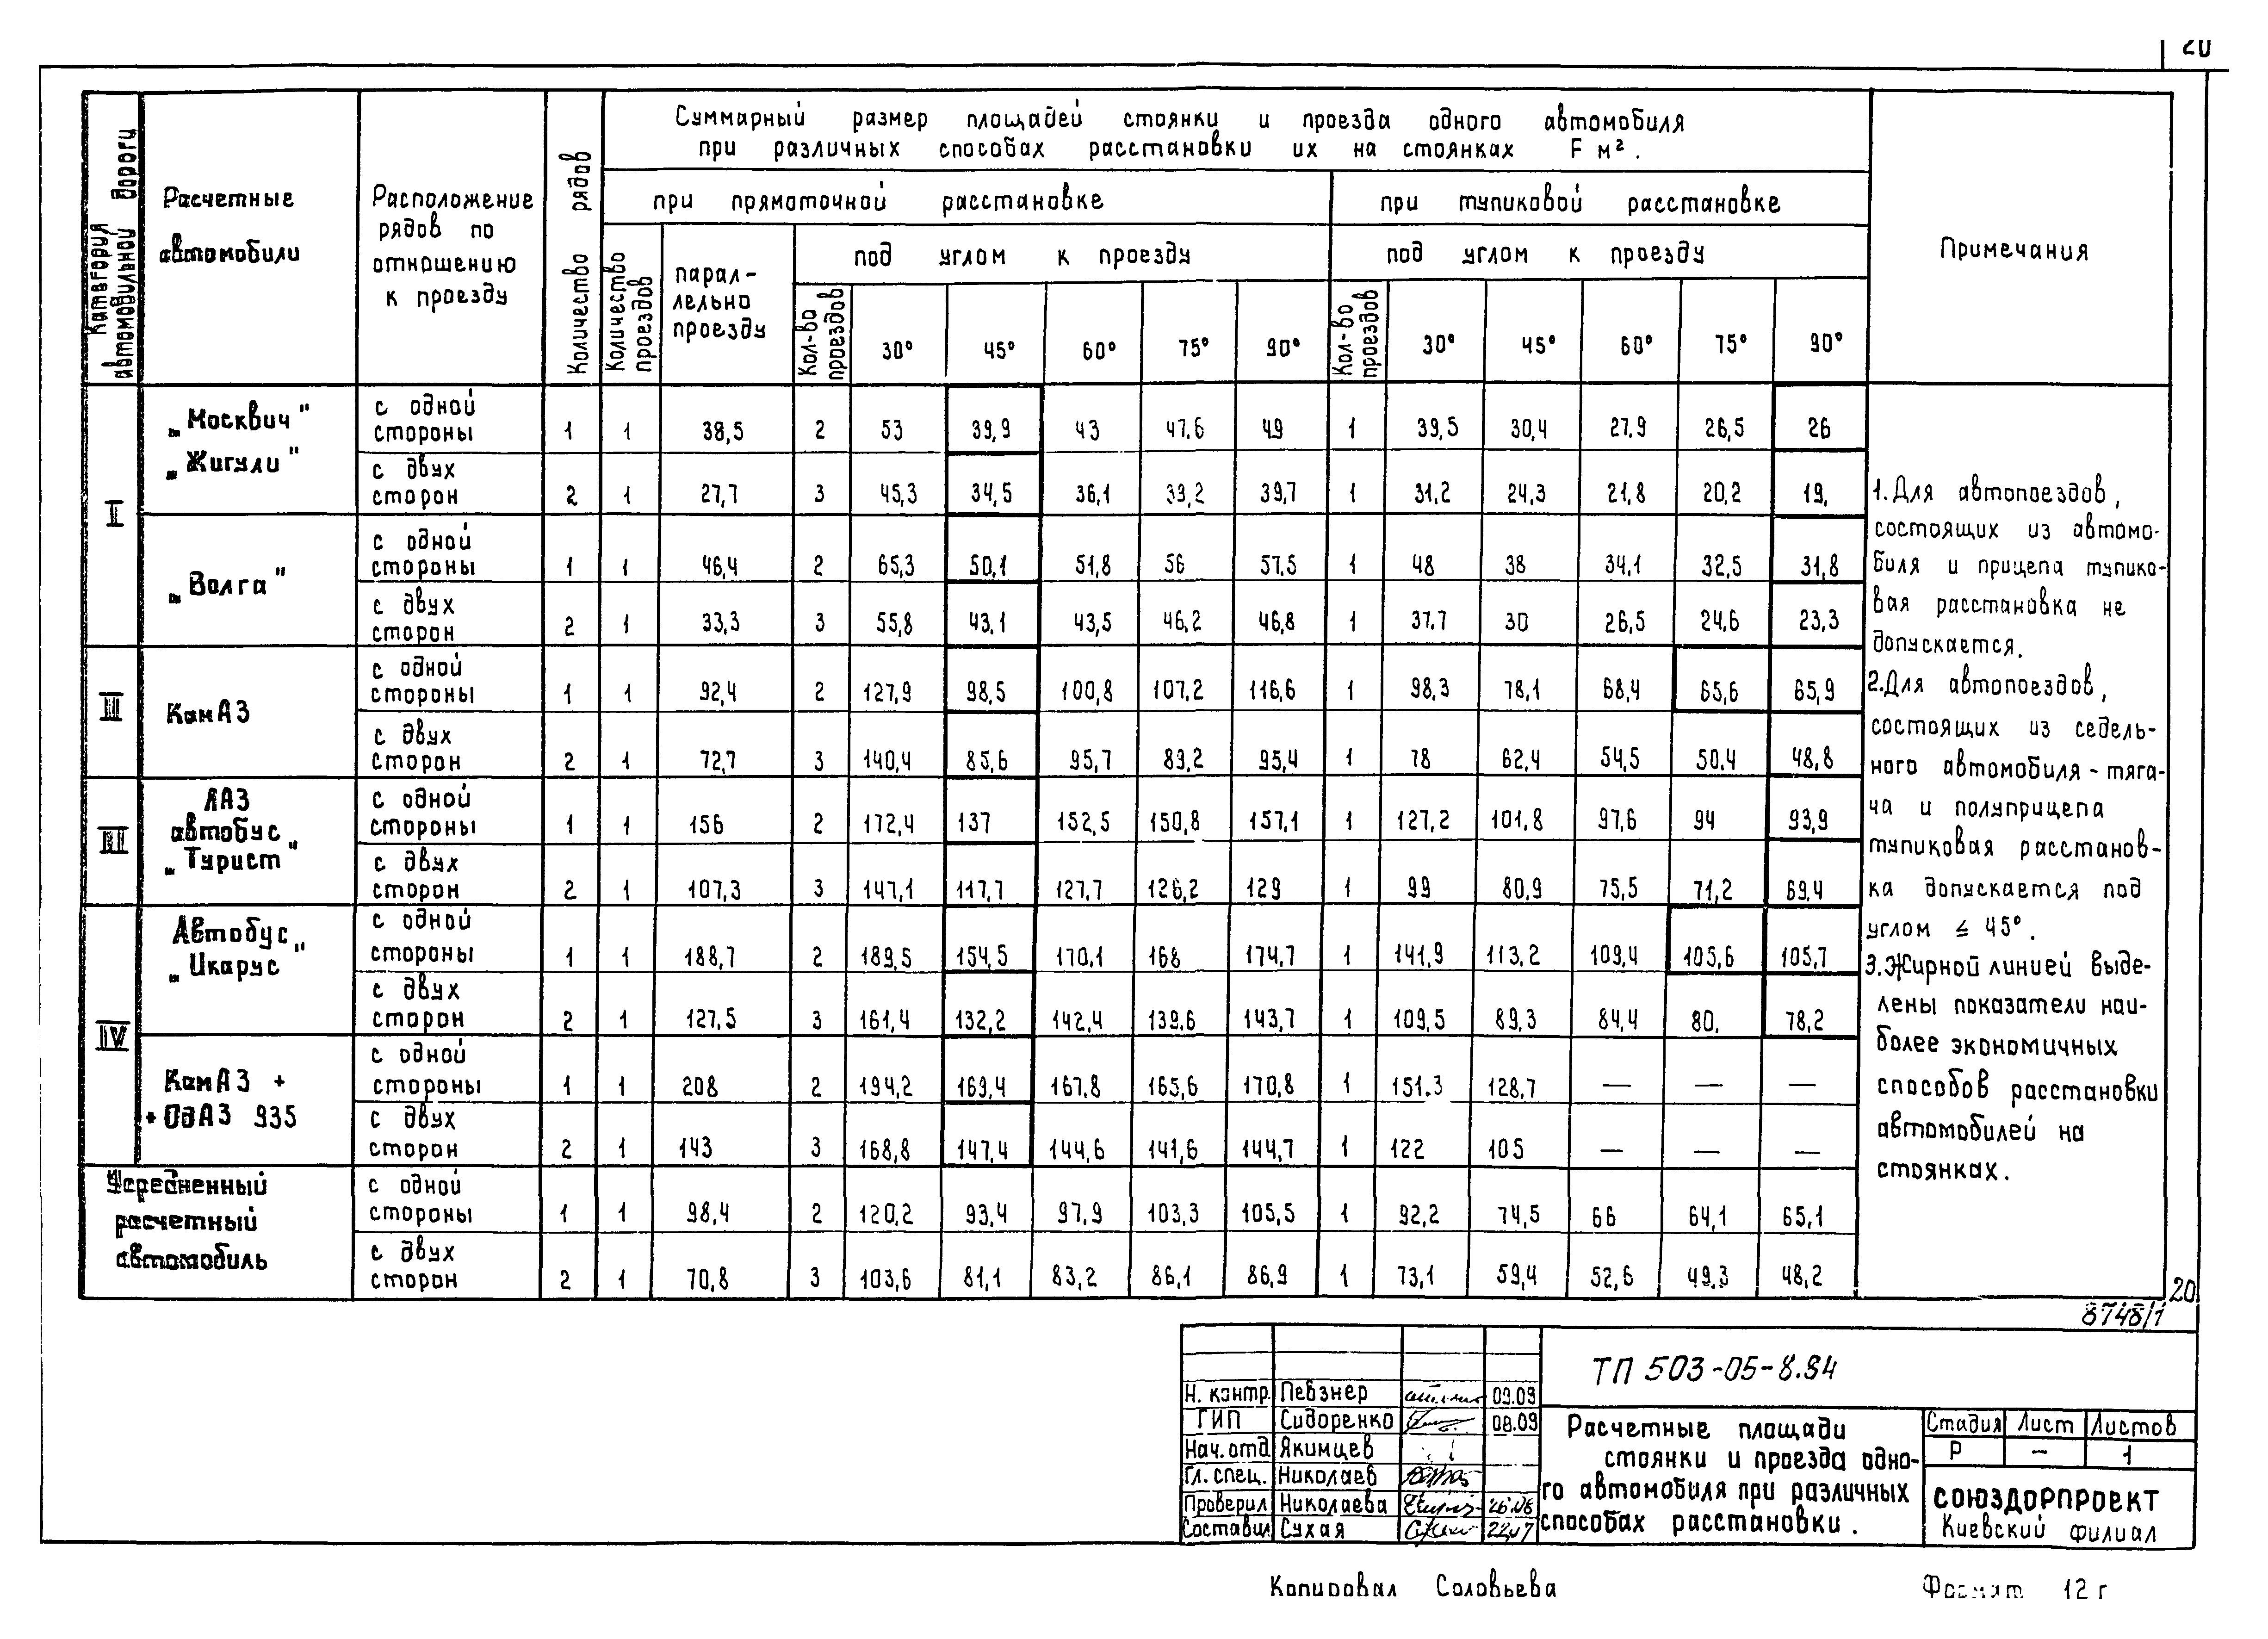 20
Категория автомобильной дороги
Расчетные автомобили
Расположение рядов по отношению к проезду
Количество рядов
Суммарный размер площадей стоянки и проезда одного автомобиля
при различных способах расстановки их на стоянках F м².
Примечания
при прямоточной расстановке
при тупиковой расстановке
Количество проездов
парал-
лельно
проезду
под углом к проезду
под углом к проезду
Кол-во проездов 30° 45° 60° 75° 90° Кол-во проездов 30° 45° 60° 75° 90°
I
„Москвич"
„Жигули"
с одной стороны 1 1 38,5 2 53 39,9 43 47,6 49 1 39,5 30,4 27,9 26,5 26
с двух сторон 2 1 27,7 3 45,3 34,5 36,1 39,2 39,7 1 31,2 24,3 21,8 20,2 19,
„Волга"
с одной стороны 1 1 46,4 2 65,3 50,1 51,8 56 57,5 1 48 38 34,1 32,5 31,8
с двух сторон 2 1 33,3 3 55,8 43.1 43,5 46,2 46,8 1 37.7 30 26,5 24,6 23,3
II
КамАЗ
с одной стороны 1 1 92,4 2 127,9 98,5 100,8 107,2 116,6 1 98,3 78,1 68,4 65,6 65,9
с двух сторон 2 1 72,7 3 140,4 85,6 95,7 89,2 95,4 1 78 62,4 54,5 50,4 48,8
III
ЛАЗ
автобус
„Турист"
с одной стороны 1 1 156 2 172,4 137 152,5 150,8 157,1 1 127,2 101,8 97,6 94 93,9
с двух сторон 2 1 107,3 3 147,1 117,7 127,7 126,2 129 1 99 80,9 75,5 71,2 69,4
IV
Автобус
„Икарус"
с одной стороны 1 1 188,7 2 189,5 154,5 170,1 168 174,7 1 141,9 113,2 109,4 105,6 105,7
с двух сторон 2 1 127,5 3 161,4 132,2 142,4 139,6 143,7 1 109,5 89,3 84,4 80, 78,2
КамАЗ +
+ ОдАЗ 935
с одной стороны 1 1 208 2 194,2 169,4 167,8 165,6 170,8 1 151.3 128,7 — — —
с двух сторон 2 1 143 3 168,8 147,4 144,6 141,6 144,7 1 122 105 — — —
Усредненный
расчетный
автомобиль
с одной стороны 1 1 98,4 2 120,2 93,4 97,9 103,3 105,5 1 92,2 74,5 66 64,1 65,1
с двух сторон 2 1 70,8 3 103,6 81,1 83,2 86,1 86,9 1 73,1 59,4 52,6 49,3 48,2
1. Для автопоездов,
состоящих из автомо-
биля и прицепа тупико-
вая расстановка не
допускается.
2. Для автопоездов,
состоящих из седель-
ного автомобиля-тяга-
ча и полуприцепа
тупиковая расстанов-
ка допускается под
углом ≤ 45°.
3. Жирной линией выде-
лены показатели наи-
более экономичных
способов расстановки
автомобилей на
стоянках.
20
8748/1
Н. контр. Певзнер 09.09
ГИП Сидоренко 08.09
Нач. отд Якимцев
Гл. спец. Николаев
Проверил Николаева
Составил Сухая
ТП 503-05-8.84
Расчетные площади
стоянки и проезда одно-
го автомобиля при различных
способах расстановки.
Стадия Лист Листов
Р — 1
СОЮЗДОРПРОЕКТ
Киевский филиал
Копировал Соловьева
Формат 12г